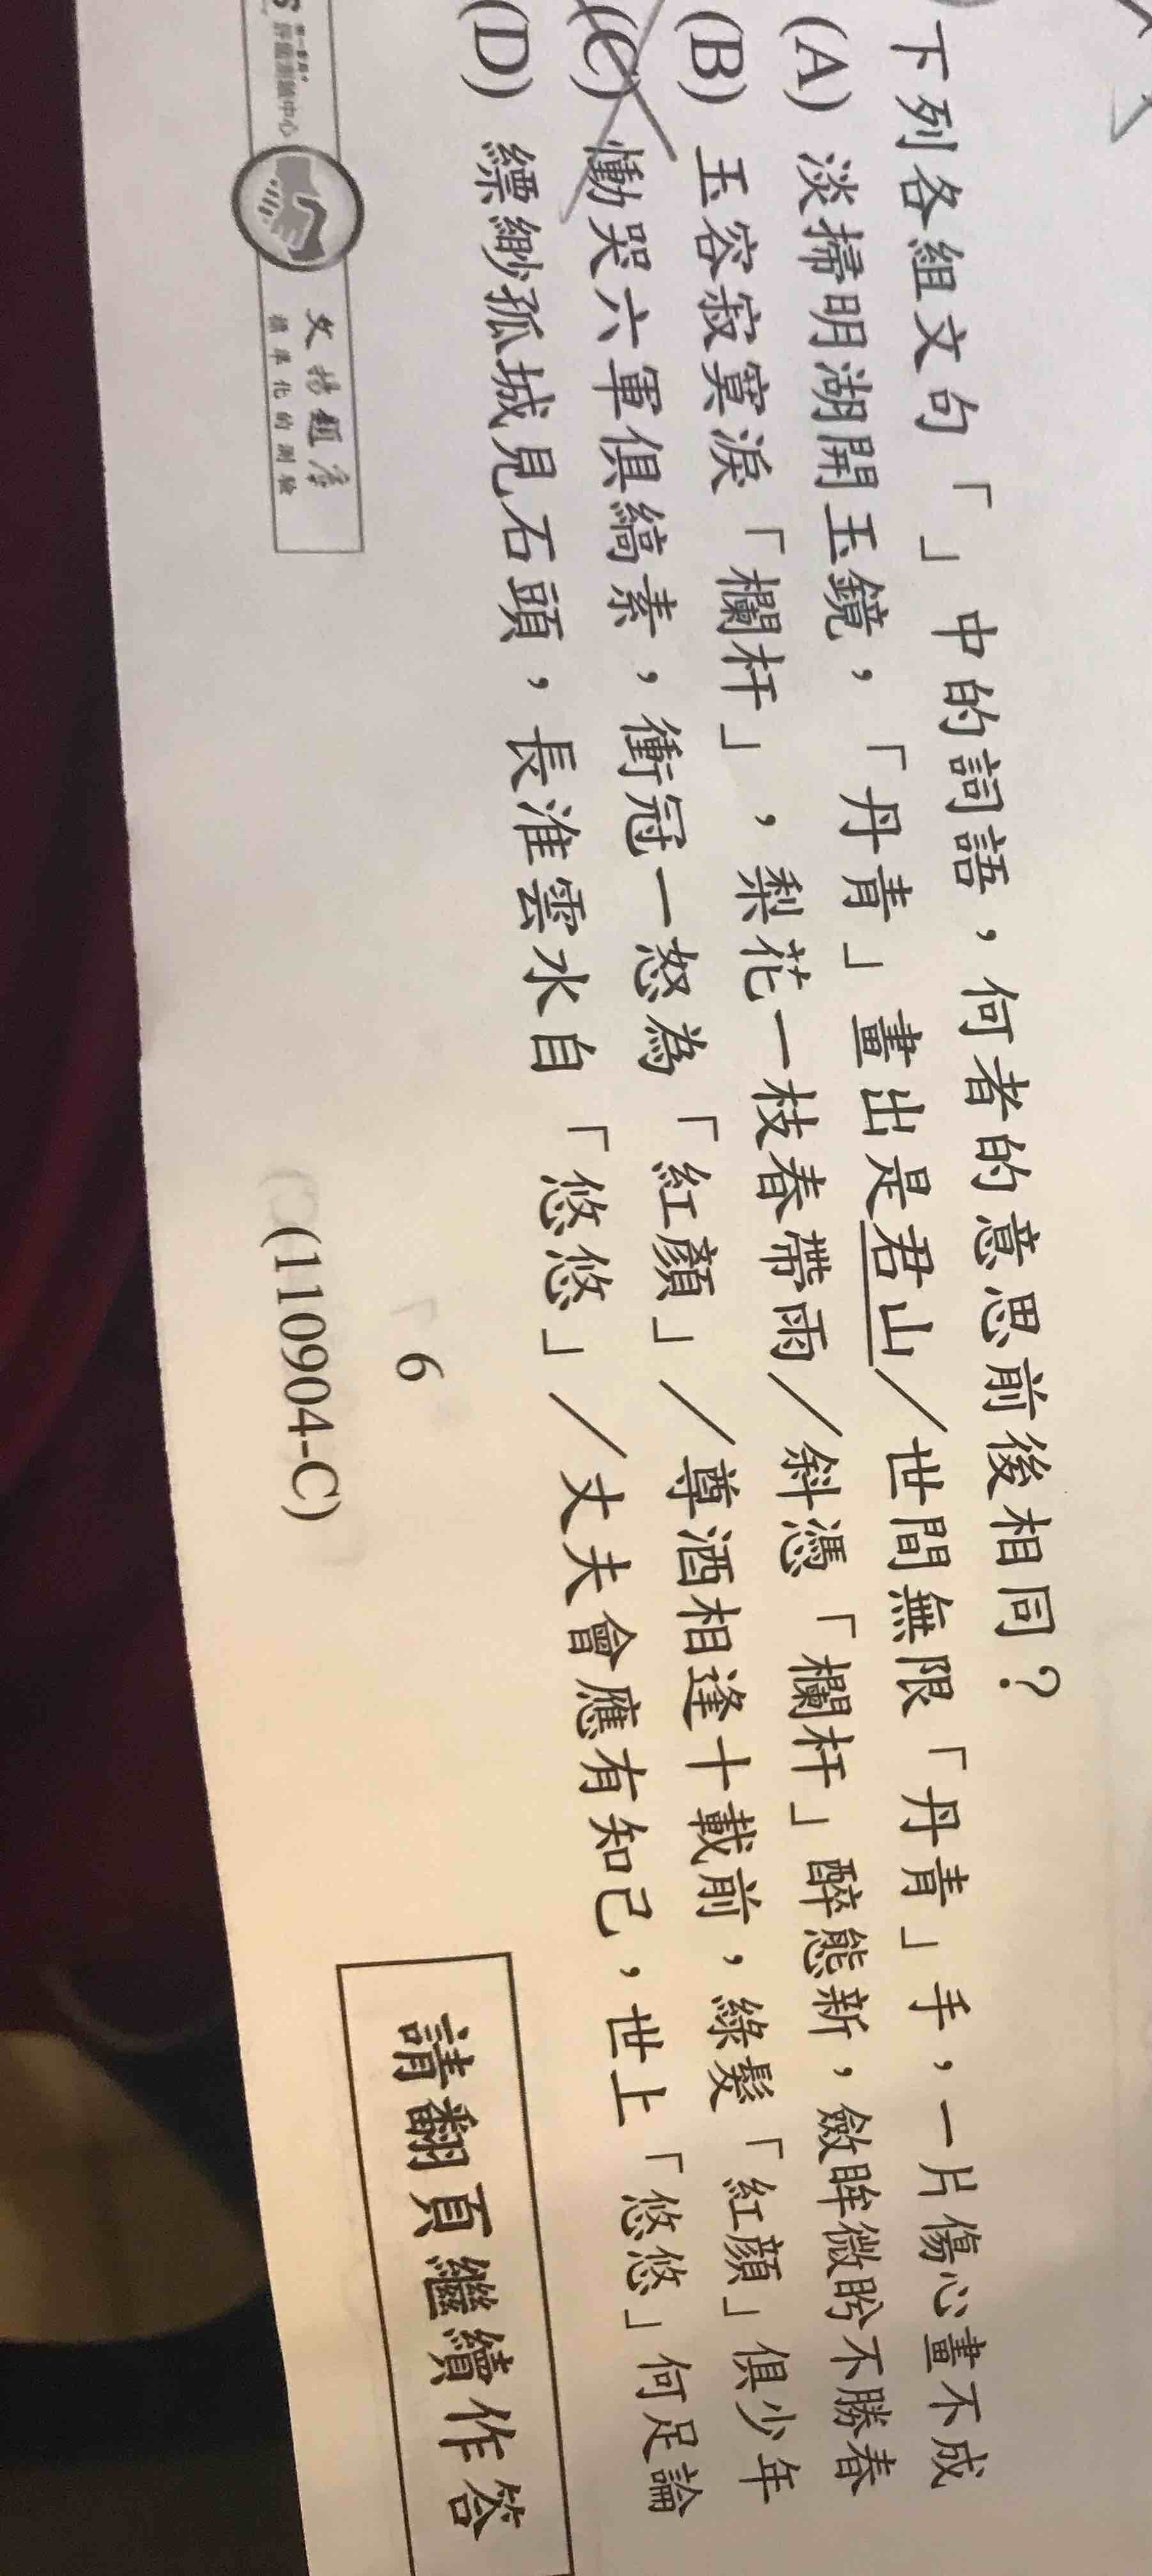 下列各組文句「」中的詞語，何者的意思前後相同？
(A) 淡掃明湖開玉鏡，「丹青」畫出是君山／世間無限「丹青」手，一片傷心畫不成
(B) 玉容寂寞淚「欄杆」，梨花一枝春帶雨／斜憑「欄杆」醉態新，斂眸微盼不勝春
(C) 慟哭六軍俱縞素，衝冠一怒為「紅顏」／尊酒相逢十載前，綠髮「紅顏」俱少年
(D) 縹緲孤城見石頭，長淮雲水自「悠悠」／丈夫會應有知己，世上「悠悠」何足論
評量測驗中心
文揚題庫
標準化的測驗
6
(110904-C)
請翻頁繼續作答